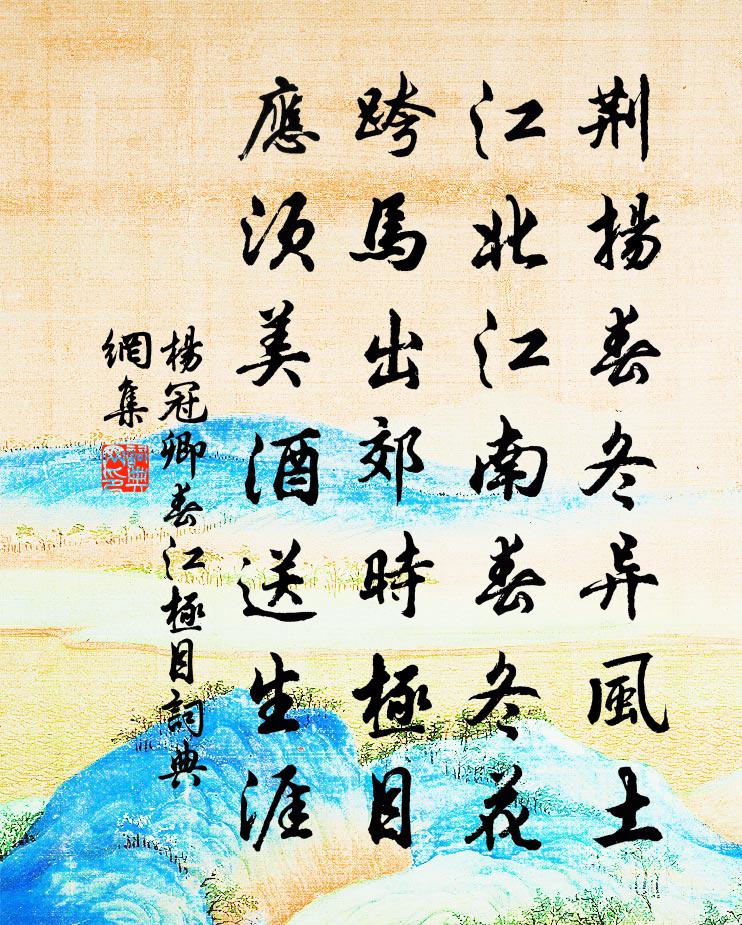 荆揚春冬异風土
江北江南春冬花
跨馬出郊時極目
應須美酒送生涯
楊冠卿春江極目詞典
網集